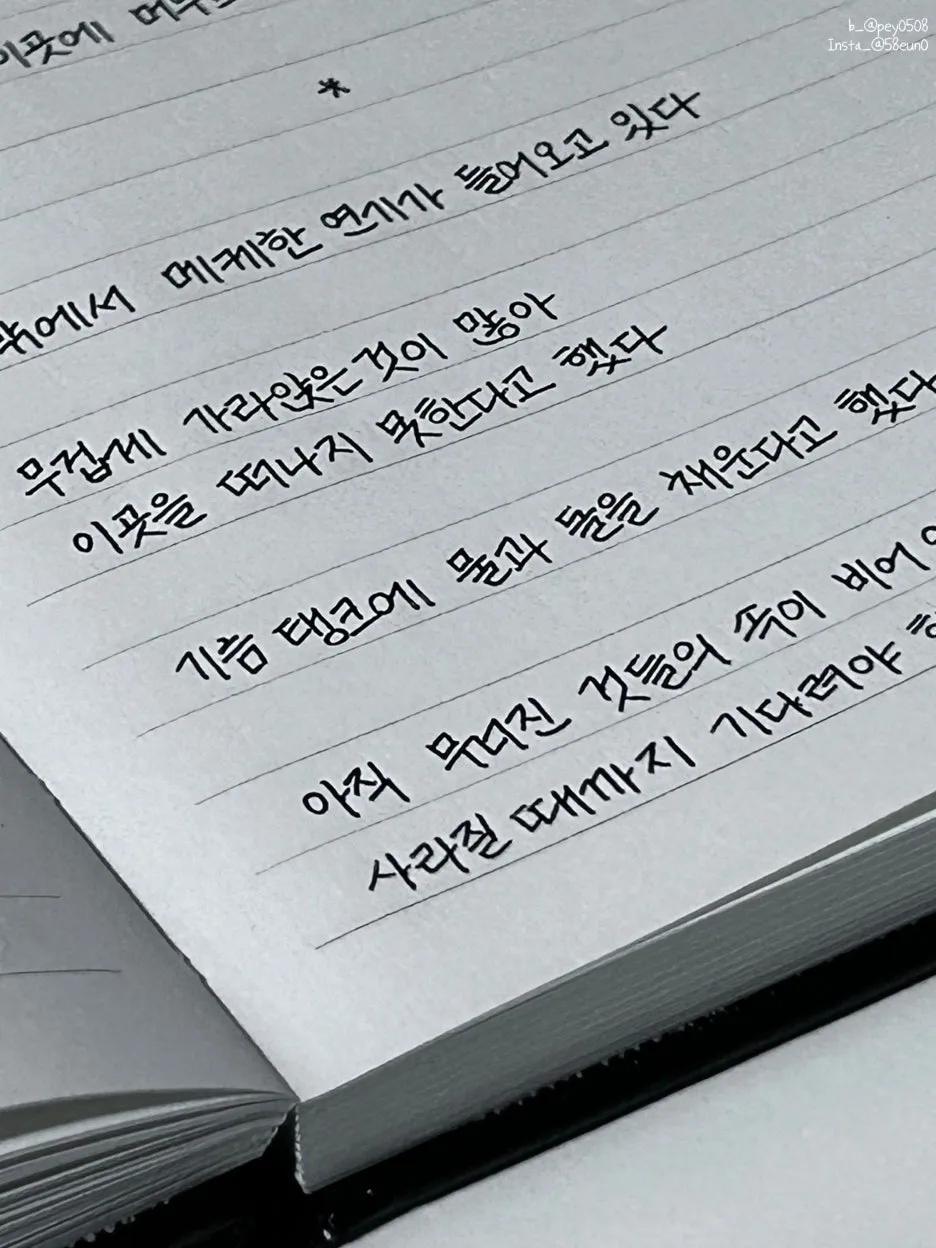 b_@pey0508
Insta_@58eun0
이곳에
*
밖에서 메케한 연기가 들어오고 있다
무겁게 가라앉은 것이 많아
이곳을 떠나지 못한다고 했다
기름 탱크에 물과 돌을 채운다고 했다
아직 무너진 것들의 속이 비어
사라질 때까지 기다려야